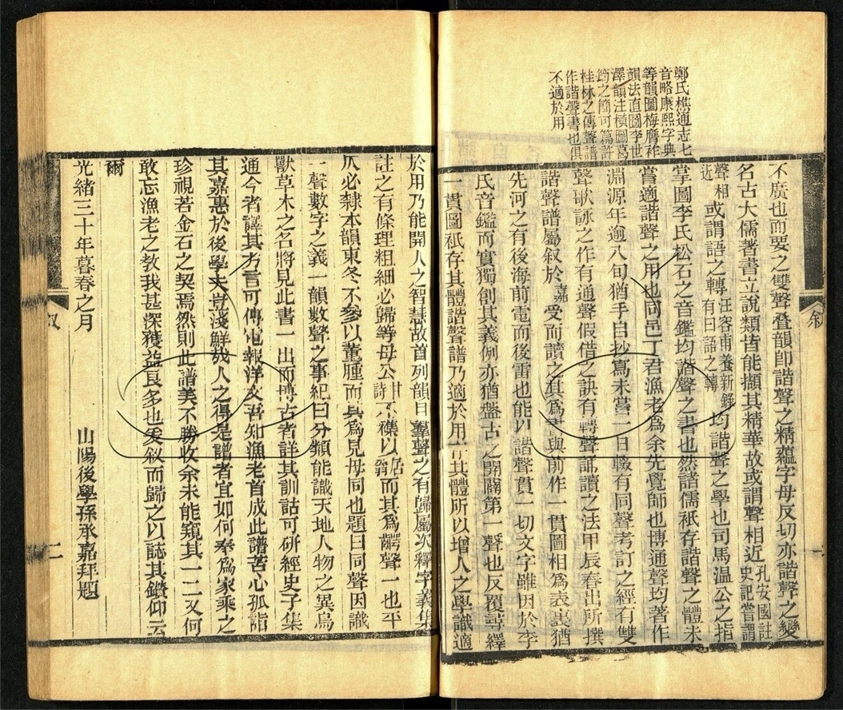 鄭氏樵通志七
音略康熙字典
等韻圖梅膺祚
韻法直圖李世
澤韻法橫圖葛
筠之簡可篇許
桂林之傳聲譜
作諧聲書也俱
不適於用
不廣也而要之雙聲叠韻即諧聲之精蘊字母反切亦諧聲之變
名古大儒著書立說類皆能擷其精華故或謂聲相近孔安國註史記嘗謂
聲相近或謂語之轉汪容甫養新錄有曰語之轉均諧聲之學也司馬溫公之指
掌圖李氏松石之音鑑均諧聲之書也然諸儒祇存諧聲之體未
嘗適諧聲之用也同邑丁君漁老為余先覺師也博通聲均著作
淵源年逾八旬猶手自抄寫未嘗一日輟有同聲考訂之經有雙
聲歌詠之作有通聲假借之訣有轉聲誦讀之法甲辰春出所撰
諧聲譜屬叙於嘉受而讀之其為書與前作一貫圖相為表裏猶
先河之有後海前電而後雷也能以諧聲貫一切文字雖因於李
氏音鑑而實獨創其義例亦猶盤古之開闢第一聲也反覆尋繹
一貫圖祇存其體諧聲譜乃適於用有其體所以增人之學識適
於用乃能開人之智慧故首列韻目羣聲之有歸屬次釋字義集
註之有條理粗細必歸等母公詩不襍以居翁而其為齶聲一也平
仄必隸本韻東冬不參以董腫而其為見母同也題曰同聲因識
一聲數字之義一韻數聲之事紀曰分類能識天地人物之異鳥
獸草木之名將見此書一出而博古者詳其訓詁可研經史子集
通今者譯其方言可傳電報洋文吾知漁老首成此譜苦心孤詣
其嘉惠於後學夫豈淺鮮哉人之得是譜者宜如何奉為家乘之
珍視若金石之契焉然則此譜美不勝收余未能窺其一二又何
敢忘漁老之教我甚深獲益良多也爰叙而歸之以誌其鑽仰云
爾
光緒三十年暮春之月
山陽後學孫承嘉拜題
叙
叙
二